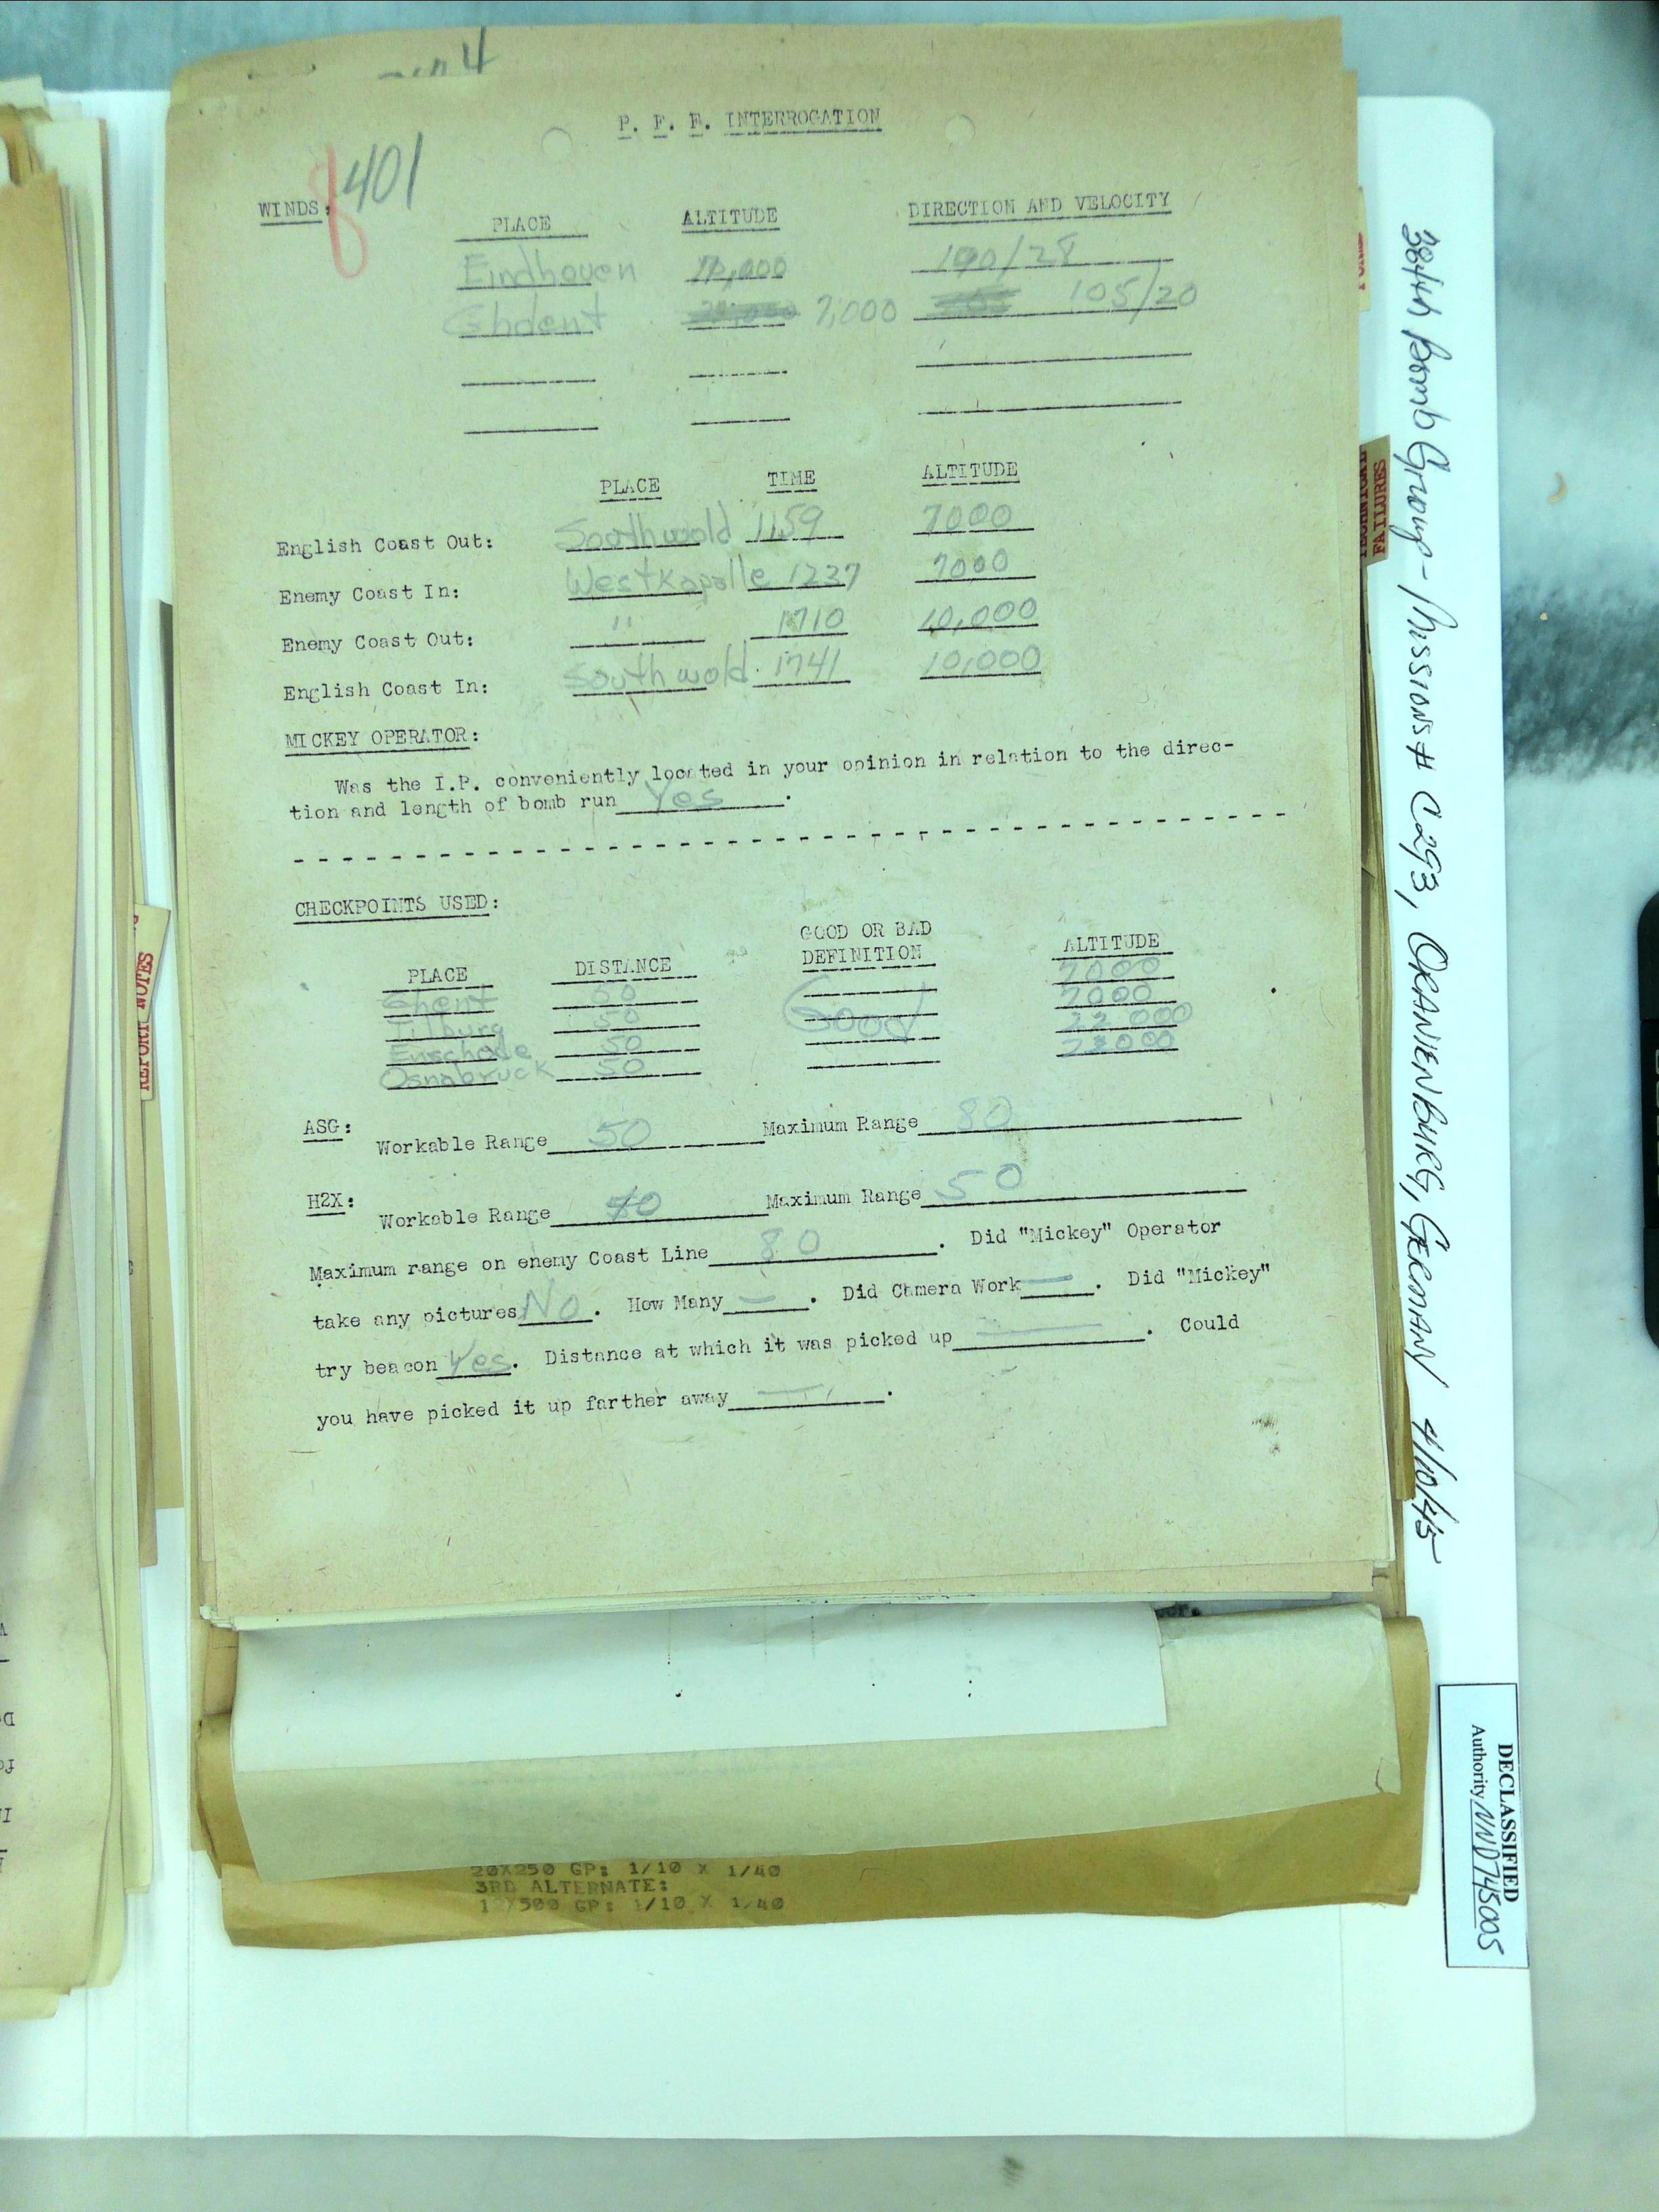 P. F. F. INTERROGATION
401
WINDS:
PLACE ALTITUDE DIRECTION AND VELOCITY
Eindhoven 190/28
Ghdent 7,000 105/20
PLACE TIME ALTITUDE
English Coast Out: Southwold 1159 7000
Enemy Coast In: Westkapalle 1237 7000
Enemy Coast Out: " 1710 10,000
English Coast In: Southwold 1741 10,000
MICKEY OPERATOR:
Was the I.P. conveniently located in your opinion in relation to the direc-
tion and length of bomb run Yes.
CHECKPOINTS USED:
PLACE DISTANCE GOOD OR BAD DEFINITION ALTITUDE
Ghent 50 7000
Tilburg 50 Good 7000
Enschede 50 22 000
Osnabruck 50 22000
ASG: Workable Range 50 Maximum Range 80
H2X: Workable Range 40 Maximum Range 50
Maximum range on enemy Coast Line 80. Did "Mickey" Operator
take any pictures No. How Many —. Did Camera Work —. Did "Mickey"
try beacon Yes. Distance at which it was picked up —. Could
you have picked it up farther away —.
20X250 GP: 1/10 X 1/40
3RD ALTERNATE:
12X500 GP: 1/10 X 1/40
REPORT NOTES
TECHNICAL
FAILURES
384th Bomb Group - Missions # C293, ORANIENBURG, GERMANY 4/10/45
DECLASSIFIED
Authority NND745005